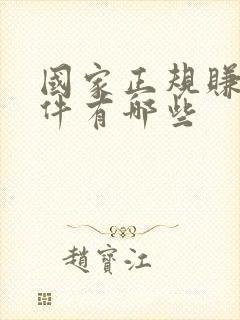 國家正規賺
件有哪些
趙寶江